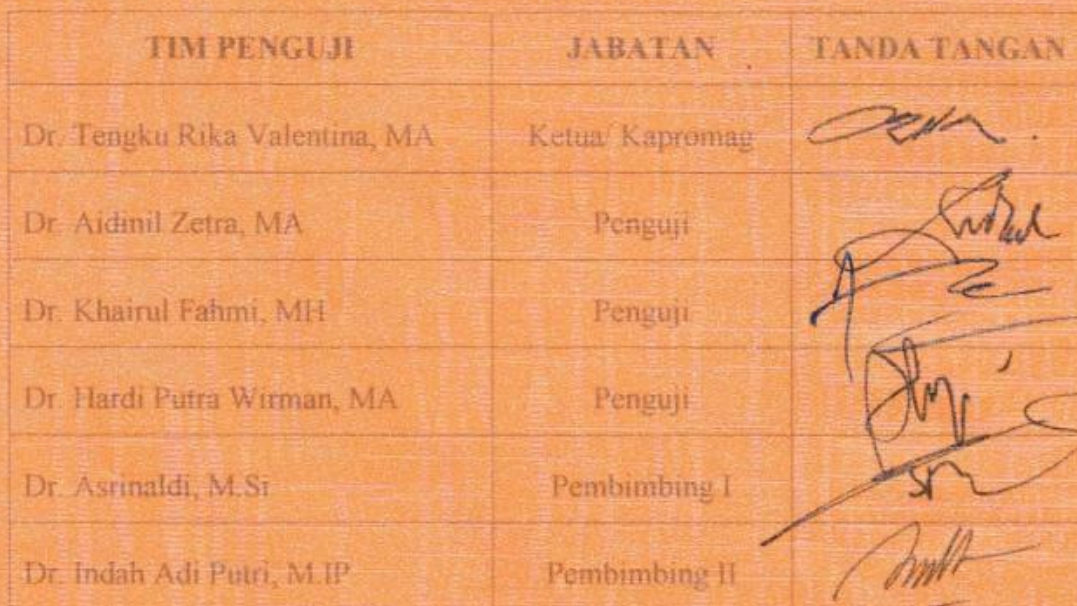 TIM PENGUJI JABATAN TANDA TANGAN
Dr. Tengku Rika Valentina, MA Ketua/ Kapromag
Dr. Aidinil Zetra, MA Penguji
Dr. Khairul Fahmi, MH Penguji
Dr. Hardi Putra Wirman, MA Penguji
Dr. Asrinaldi, M.Si Pembimbing I
Dr. Indah Adi Putri, M.IP Pembimbing II